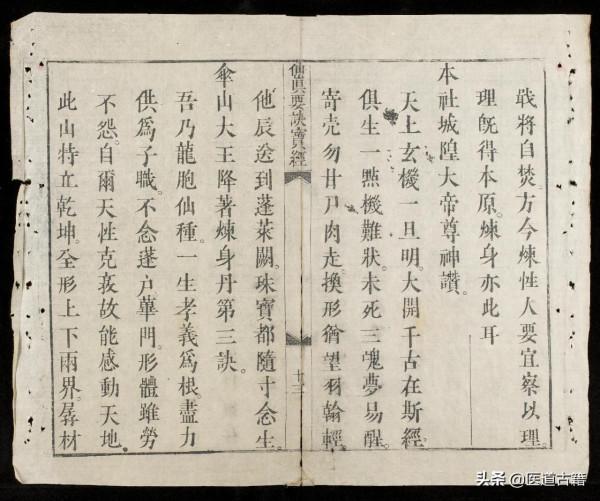 戢將自焚。方今煉性人。要宜察以理。
理旣得本原。煉身亦此耳
本社城隍大帝尊神讚。
天上玄機一旦明。大開千古在斯經。
俱生一㸃機難狀。未死三魂夢易醒。
寄壳勿甘尸肉走。換形猶望羽翰輕。
仙眞要訣寳經
十三
他辰送到蓬萊闕。珠寶都隨寸念生。
傘山大王降著煉身丹第三訣。
吾乃龍胞仙種。一生孝義爲根。盡力
供爲子職。不念蓬户蓽門。形體雖勞
不怨。自爾天性克亥。故能感動天地。
此山特立乾坤。全形上下兩界。孱材
头条 @医道古籍